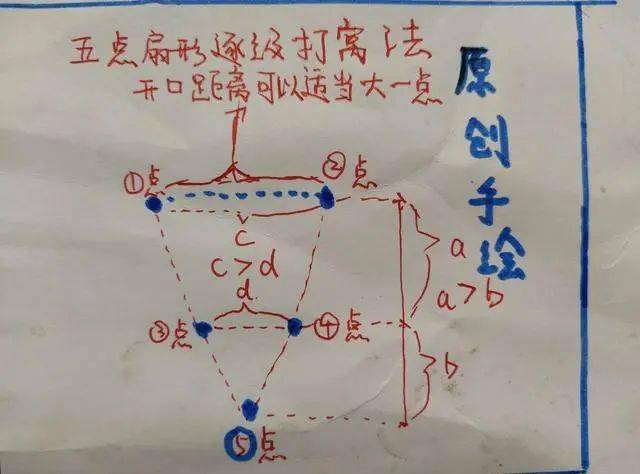 五点扇形逐级打窝法
开口距离可以适当大一点
原创手绘
①点
②点
c
c>d
d
a
a>b
③点
④点
b
⑤点